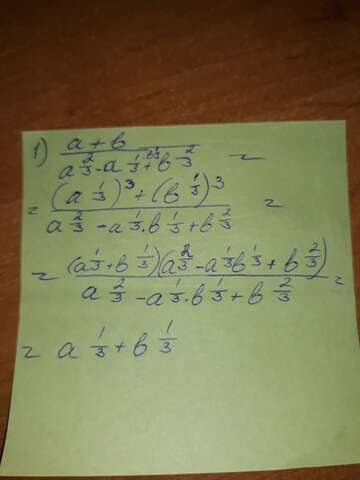 1) (a+b)/(a^(2/3)-a^(1/3)·b^(1/3)+b^(2/3)) =
= ((a^(1/3))^3+(b^(1/3))^3)/(a^(2/3)-a^(1/3)·b^(1/3)+b^(2/3)) =
= ((a^(1/3)+b^(1/3))(a^(2/3)-a^(1/3)b^(1/3)+b^(2/3)))/(a^(2/3)-a^(1/3)·b^(1/3)+b^(2/3)) =
= a^(1/3)+b^(1/3)